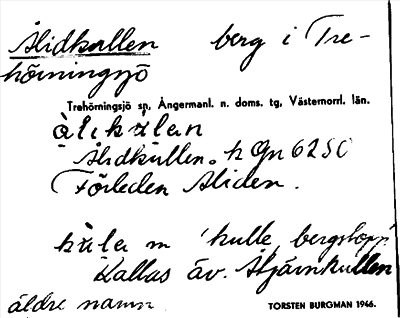 Ålidkullen berg i Tre-
hörningsjö
Trehörningsjö sn, Ångermanl. n. doms. tg, Västernorrl. län.
Ålidkullen. h Gn 6250
Förleden Åliden.
m 'kulle, bergstopp'
Kallas äv. Stjärnkullen
äldre namn
TORSTEN BURGMAN 1946.